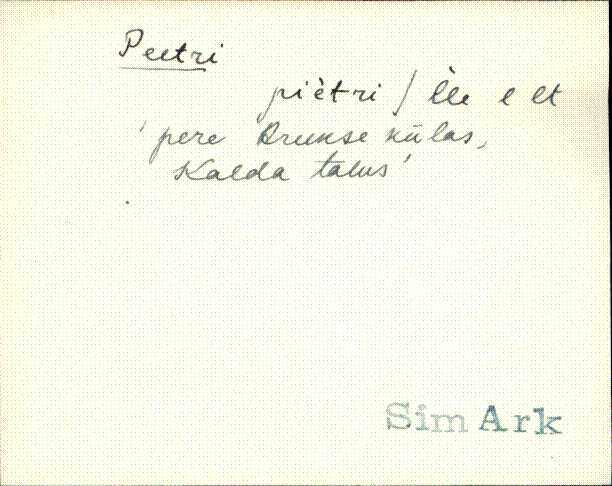 Peetri
piètri / l̀le e et
'pere Aruküla külas,
Kalda talus'
Sim Ark